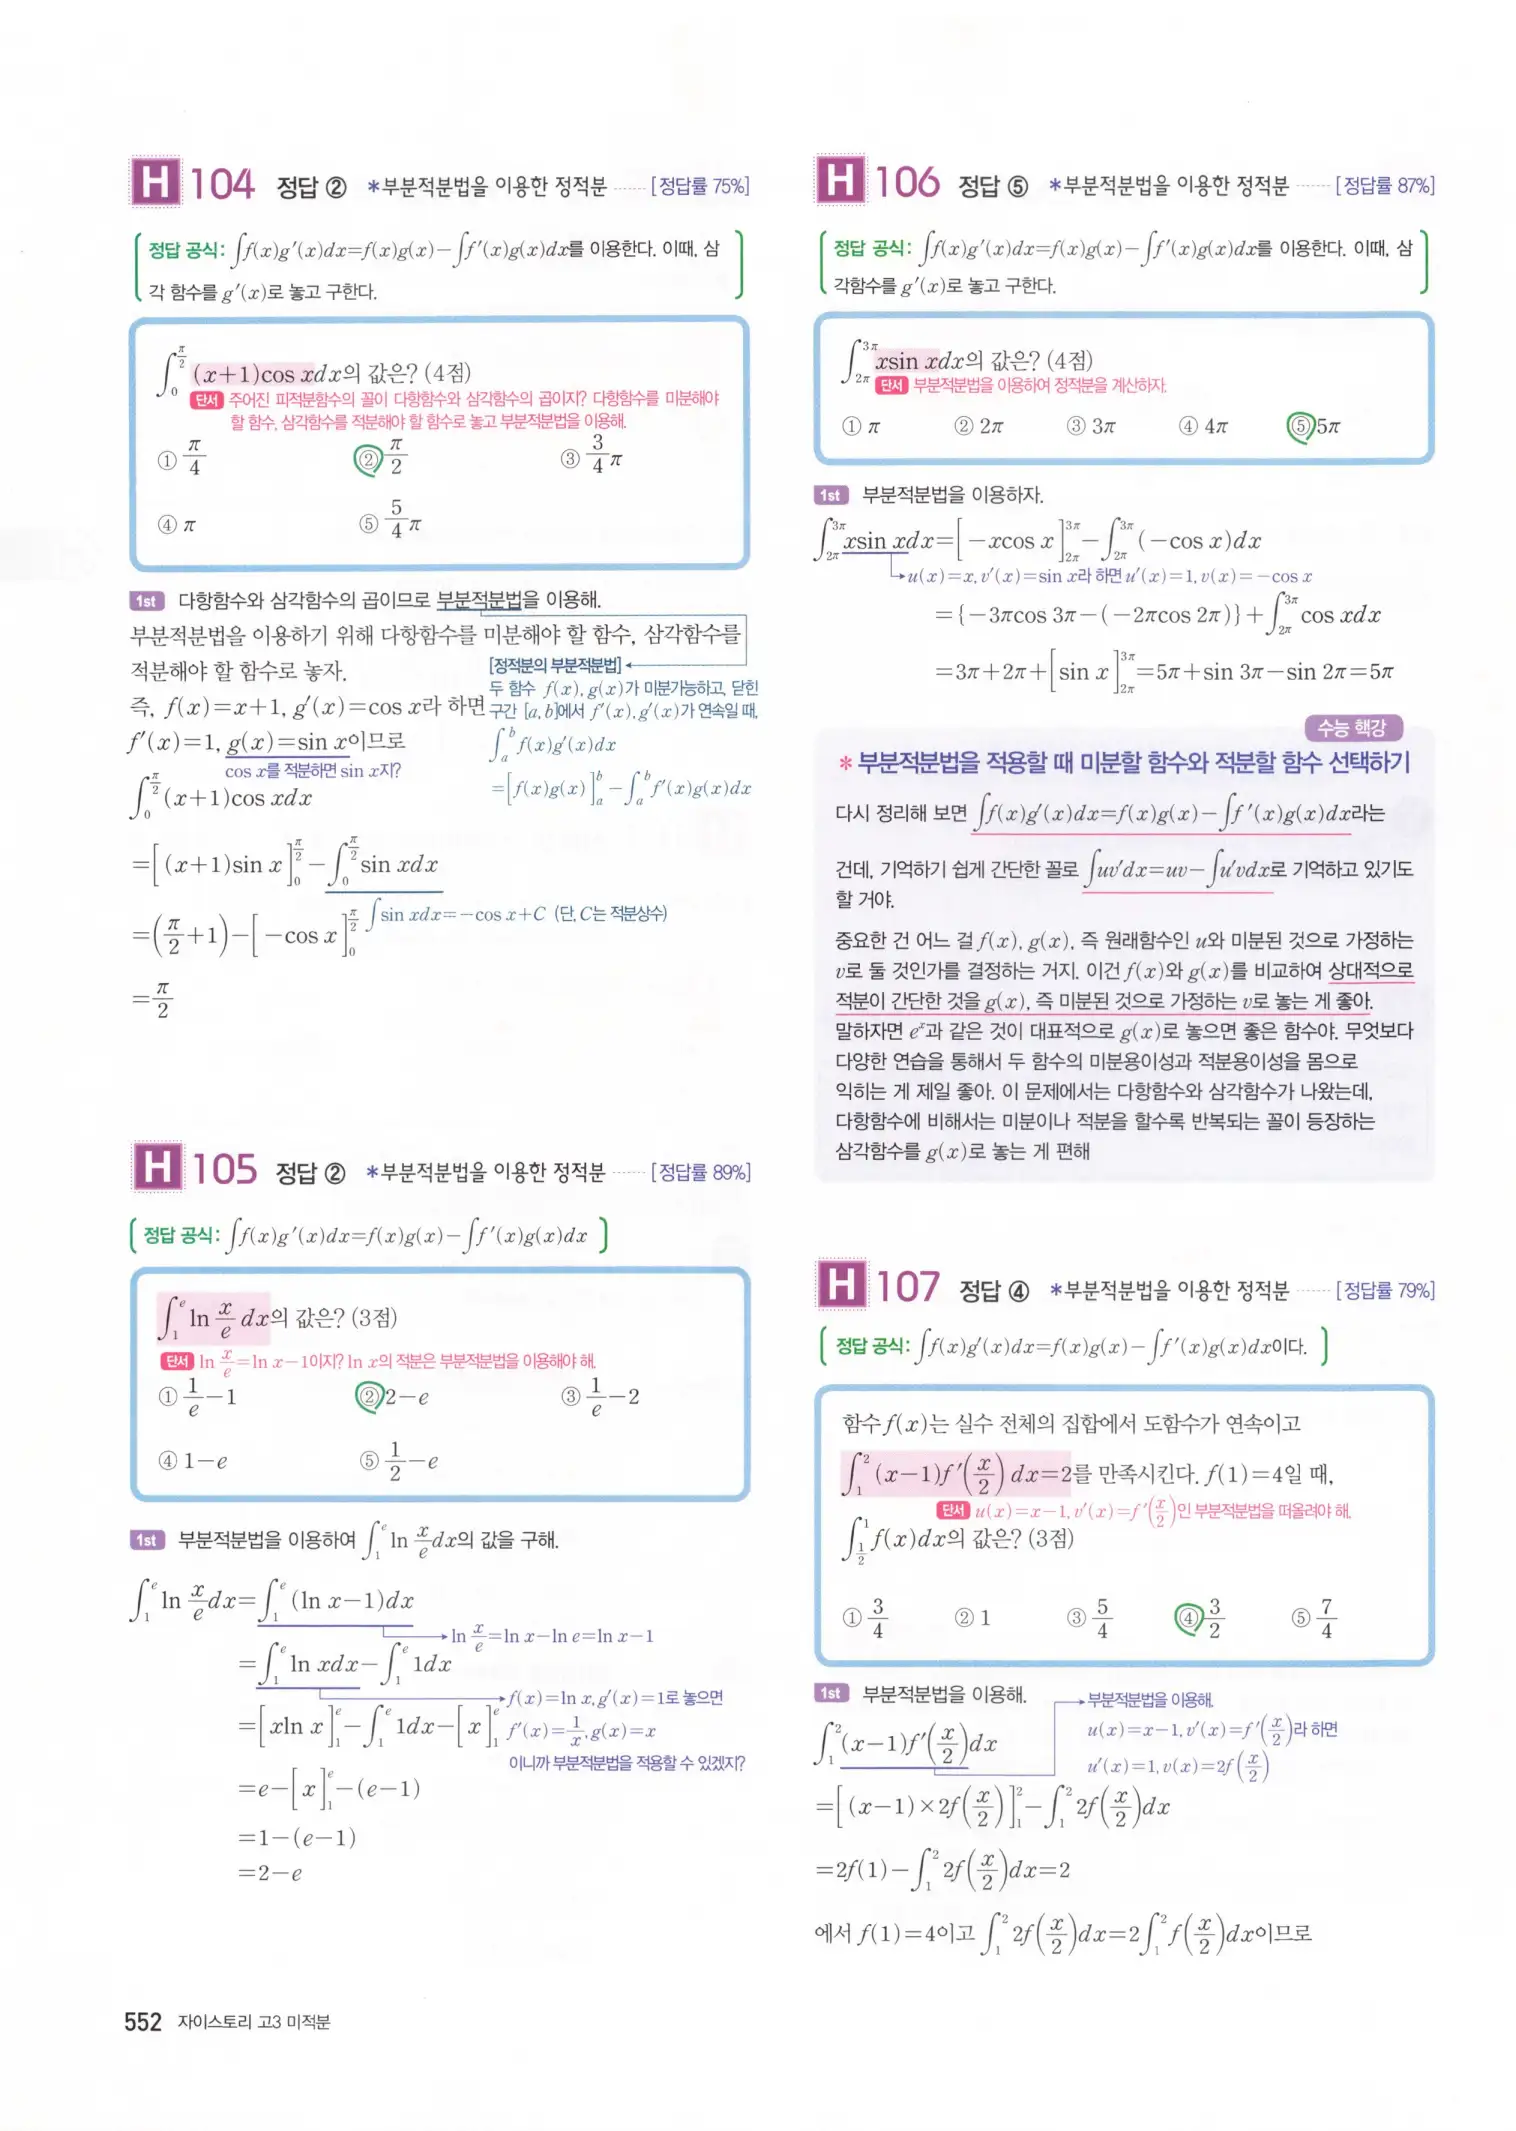 H 104 정답 ② *부분적분법을 이용한 정적분 ······ [정답률 75%]
정답 공식: ∫f(x)g′(x)dx=f(x)g(x)−∫f′(x)g(x)dx를 이용한다. 이때, 삼
각 함수를 g′(x)로 놓고 구한다.
∫₀^{π/2} (x+1)cos xdx의 값은? (4점)
단서 주어진 피적분함수의 꼴이 다항함수와 삼각함수의 곱이지? 다항함수를 미분해야
할 함수, 삼각함수를 적분해야 할 함수로 놓고 부분적분법을 이용해.
① π/4 ② π/2 ③ 3/4 π
④ π ⑤ 5/4 π
1st 다항함수와 삼각함수의 곱이므로 부분적분법을 이용해.
부분적분법을 이용하기 위해 다항함수를 미분해야 할 함수, 삼각함수를
적분해야 할 함수로 놓자.
즉, f(x)=x+1, g′(x)=cos x라 하면
f′(x)=1, g(x)=sin x이므로
cos x를 적분하면 sin x지?
[정적분의 부분적분법]
두 함수 f(x), g(x)가 미분가능하고, 닫힌
구간 [a, b]에서 f′(x), g′(x)가 연속일 때,
∫ₐᵇ f(x)g′(x)dx
=[f(x)g(x)]ₐᵇ−∫ₐᵇ f′(x)g(x)dx
∫₀^{π/2} (x+1)cos xdx
=[(x+1)sin x]₀^{π/2}−∫₀^{π/2} sin xdx
∫sin xdx=−cos x+C (단, C는 적분상수)
=(π/2+1)−[−cos x]₀^{π/2}
=π/2
H 105 정답 ② *부분적분법을 이용한 정적분 ······ [정답률 89%]
정답 공식: ∫f(x)g′(x)dx=f(x)g(x)−∫f′(x)g(x)dx
∫₁ᵉ ln x/e dx의 값은? (3점)
단서 ln x/e=ln x−1이지? ln x의 적분은 부분적분법을 이용해야 해.
① 1/e−1 ② 2−e ③ 1/e−2
④ 1−e ⑤ 1/2−e
1st 부분적분법을 이용하여 ∫₁ᵉ ln x/e dx의 값을 구해.
∫₁ᵉ ln x/e dx=∫₁ᵉ (ln x−1)dx
ln x/e=ln x−ln e=ln x−1
=∫₁ᵉ ln xdx−∫₁ᵉ 1dx
f(x)=ln x, g′(x)=1로 놓으면
=[xln x]₁ᵉ−∫₁ᵉ 1dx−[x]₁ᵉ
f′(x)=1/x, g(x)=x
이니까 부분적분법을 적용할 수 있겠지?
=e−[x]₁ᵉ−(e−1)
=1−(e−1)
=2−e
552 자이스토리 고3 미적분
H 106 정답 ⑤ *부분적분법을 이용한 정적분 ······ [정답률 87%]
정답 공식: ∫f(x)g′(x)dx=f(x)g(x)−∫f′(x)g(x)dx를 이용한다. 이때, 삼
각함수를 g′(x)로 놓고 구한다.
∫_{2π}^{3π} xsin xdx의 값은? (4점)
단서 부분적분법을 이용하여 정적분을 계산하자.
① π ② 2π ③ 3π ④ 4π ⑤ 5π
1st 부분적분법을 이용하자.
∫_{2π}^{3π} xsin xdx=[−xcos x]_{2π}^{3π}−∫_{2π}^{3π} (−cos x)dx
u(x)=x, v′(x)=sin x라 하면 u′(x)=1, v(x)=−cos x
={−3πcos 3π−(−2πcos 2π)}+∫_{2π}^{3π} cos xdx
=3π+2π+[sin x]_{2π}^{3π}=5π+sin 3π−sin 2π=5π
수능 핵강
* 부분적분법을 적용할 때 미분할 함수와 적분할 함수 선택하기
다시 정리해 보면 ∫f(x)g′(x)dx=f(x)g(x)−∫f′(x)g(x)dx라는
건데, 기억하기 쉽게 간단한 꼴로 ∫uv′dx=uv−∫u′vdx로 기억하고 있기도
할 거야.
중요한 건 어느 걸 f(x), g(x), 즉 원래함수인 u와 미분된 것으로 가정하는
v로 둘 것인가를 결정하는 거지. 이건 f(x)와 g(x)를 비교하여 상대적으로
적분이 간단한 것을 g(x), 즉 미분된 것으로 가정하는 v로 놓는 게 좋아.
말하자면 eˣ과 같은 것이 대표적으로 g(x)로 놓으면 좋은 함수야. 무엇보다
다양한 연습을 통해서 두 함수의 미분용이성과 적분용이성을 몸으로
익히는 게 제일 좋아. 이 문제에서는 다항함수와 삼각함수가 나왔는데,
다항함수에 비해서는 미분이나 적분을 할수록 반복되는 꼴이 등장하는
삼각함수를 g(x)로 놓는 게 편해
H 107 정답 ④ *부분적분법을 이용한 정적분 ······ [정답률 79%]
정답 공식: ∫f(x)g′(x)dx=f(x)g(x)−∫f′(x)g(x)dx이다.
함수 f(x)는 실수 전체의 집합에서 도함수가 연속이고
∫₁² (x−1)f′(x/2)dx=2를 만족시킨다. f(1)=4일 때,
단서 u(x)=x−1, v′(x)=f′(x/2)인 부분적분법을 떠올려야 해.
∫_{1/2}^{1} f(x)dx의 값은? (3점)
① 3/4 ② 1 ③ 5/4 ④ 3/2 ⑤ 7/4
1st 부분적분법을 이용해.
부분적분법을 이용해.
u(x)=x−1, v′(x)=f′(x/2)라 하면
u′(x)=1, v(x)=2f(x/2)
∫₁² (x−1)f′(x/2)dx
=[(x−1)×2f(x/2)]₁²−∫₁² 2f(x/2)dx
=2f(1)−∫₁² 2f(x/2)dx=2
에서 f(1)=4이고 ∫₁² 2f(x/2)dx=2∫₁² f(x/2)dx이므로